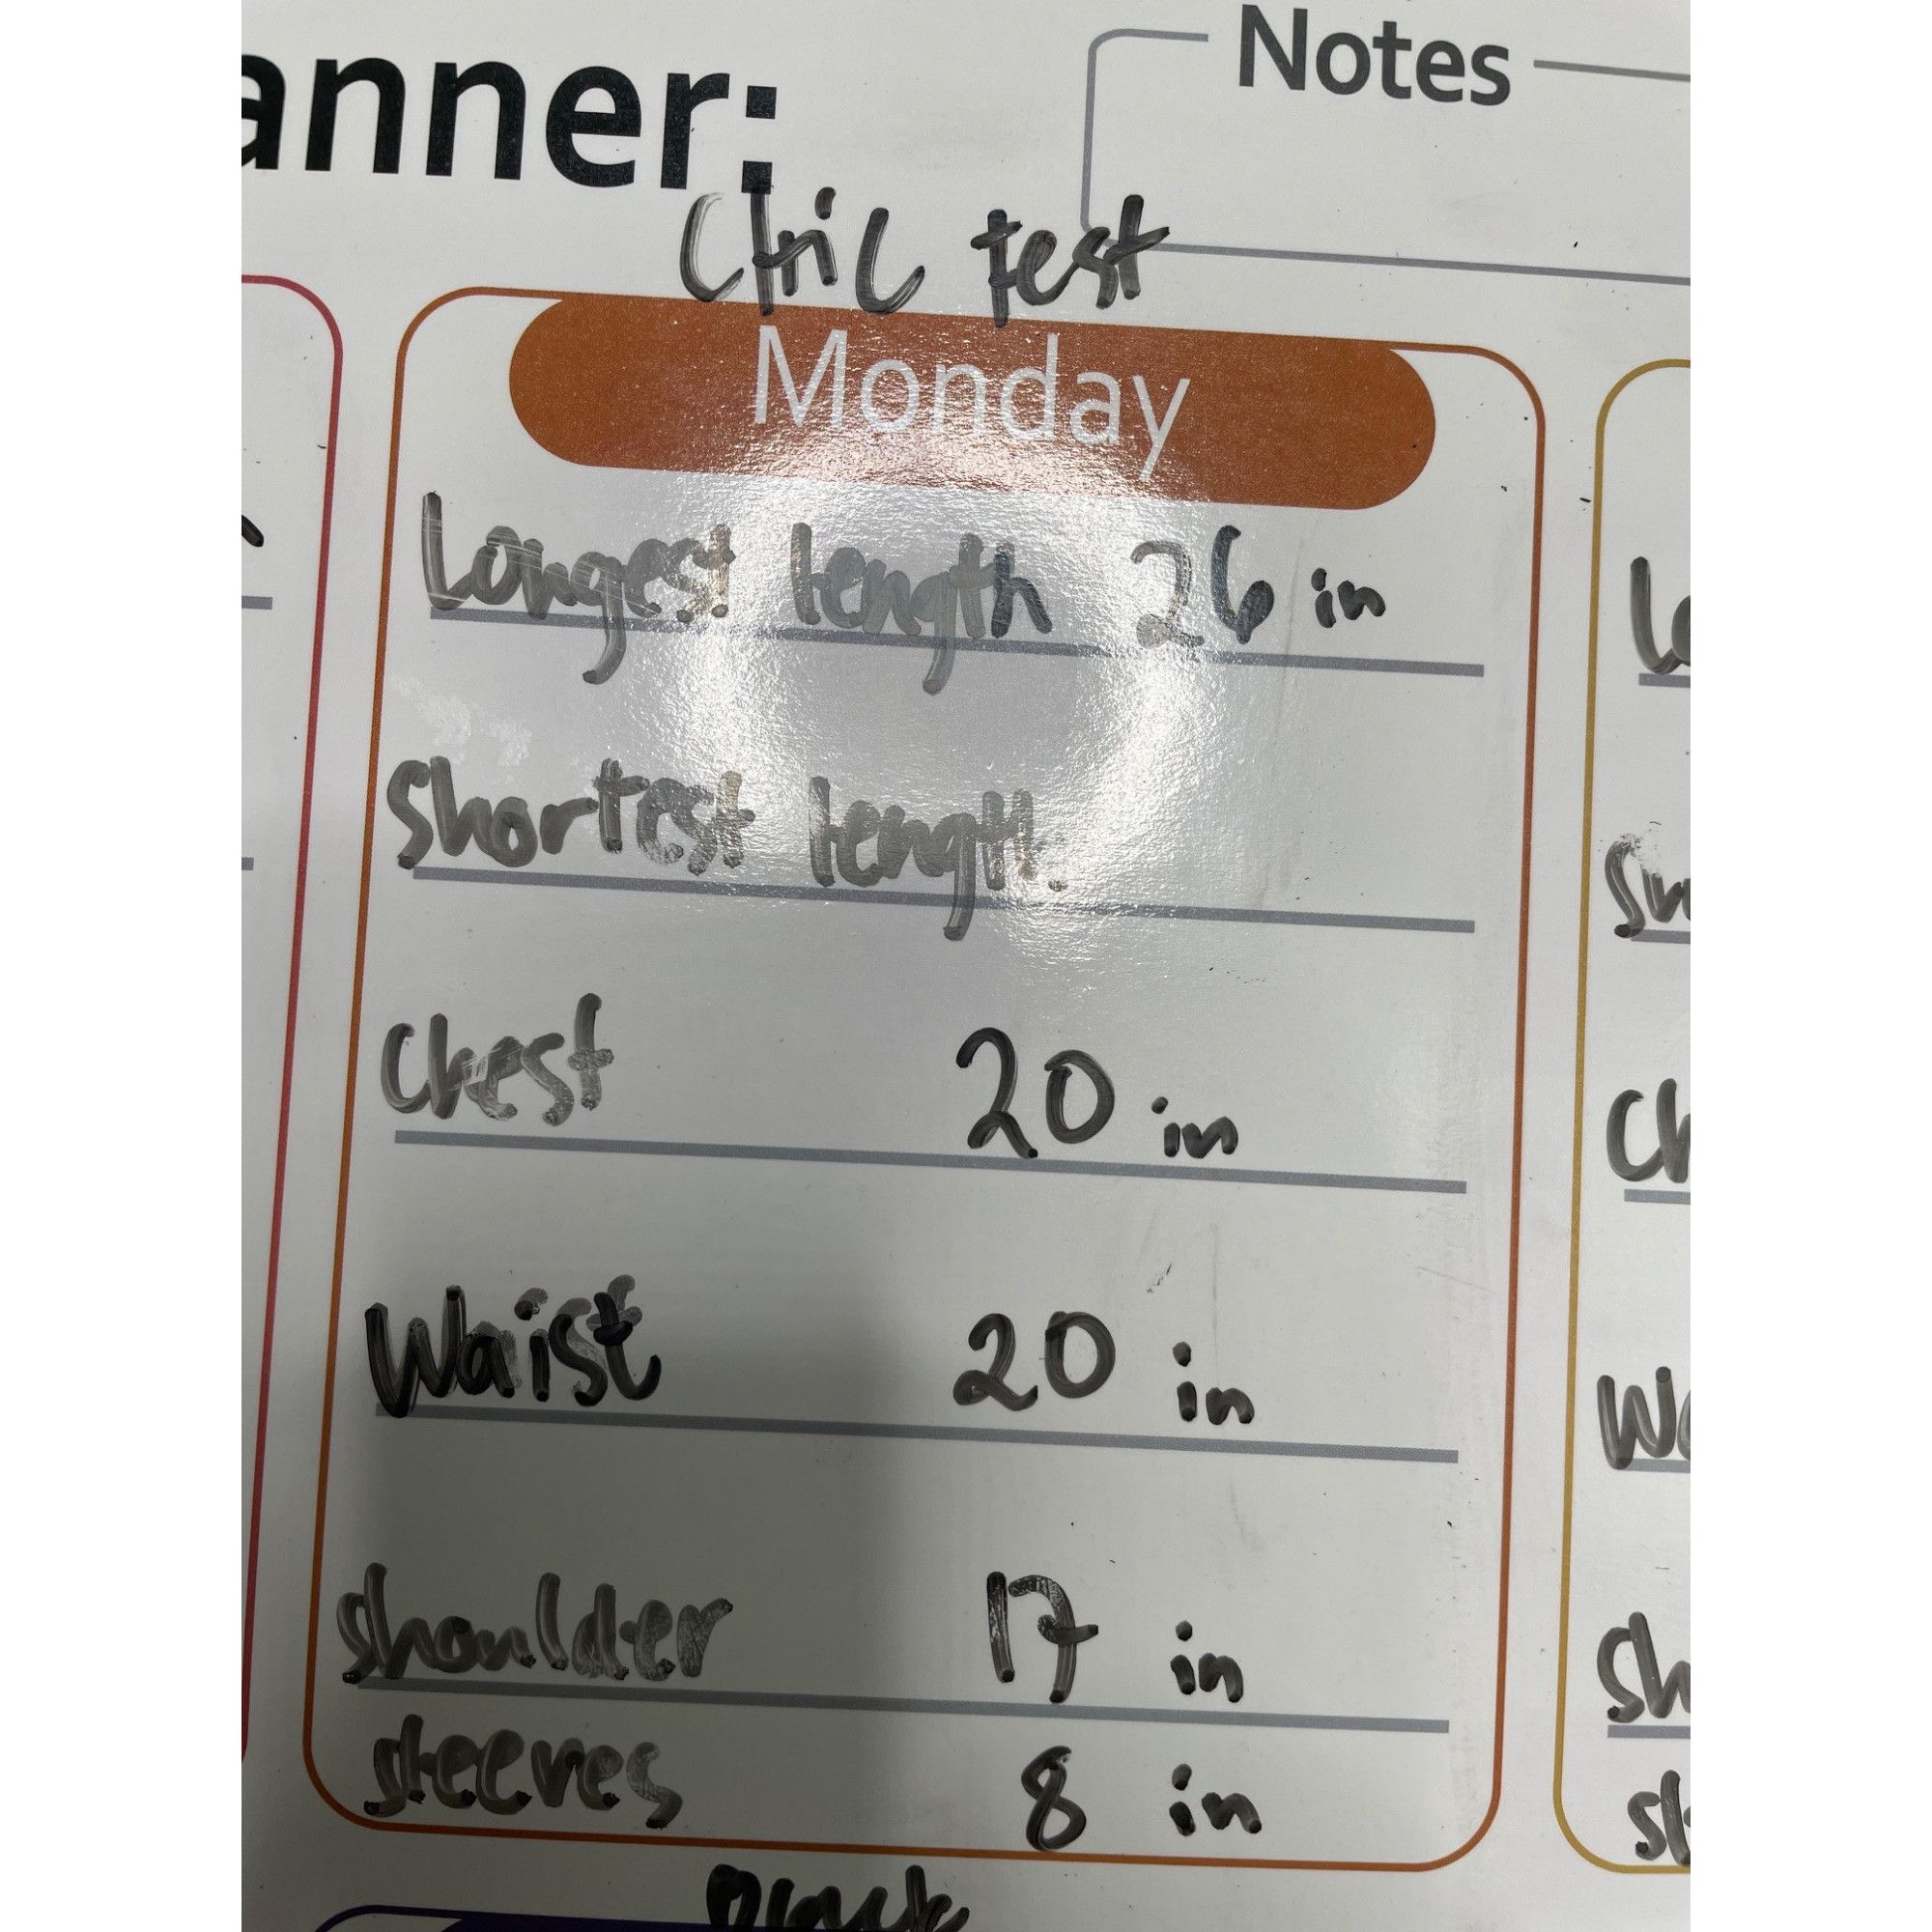 anner:
Notes
Chic test
Monday
Longest length 26 in
Shortest length.
Chest 20 in
Waist 20 in
shoulder 17 in
sleeves 8 in